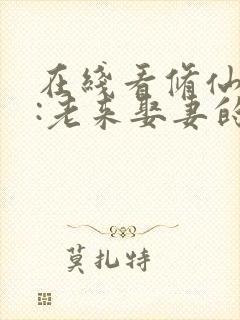 在綫看脩仙
:老来娶妻的
莫扎特